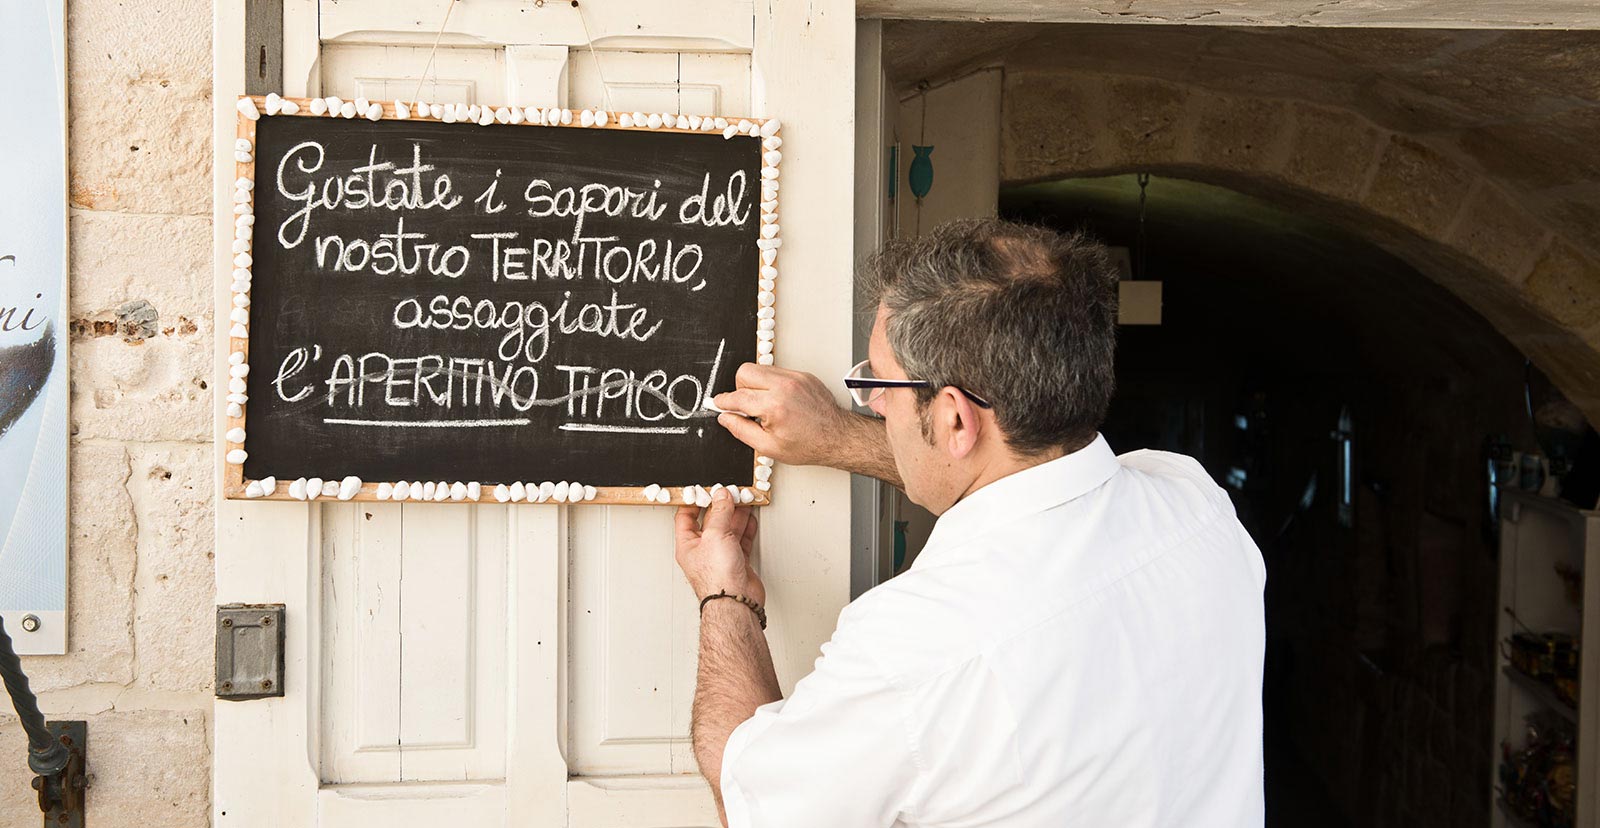 Gustate i sapori del
nostro TERRITORIO,
assaggiate
l'APERITIVO TIPICO!